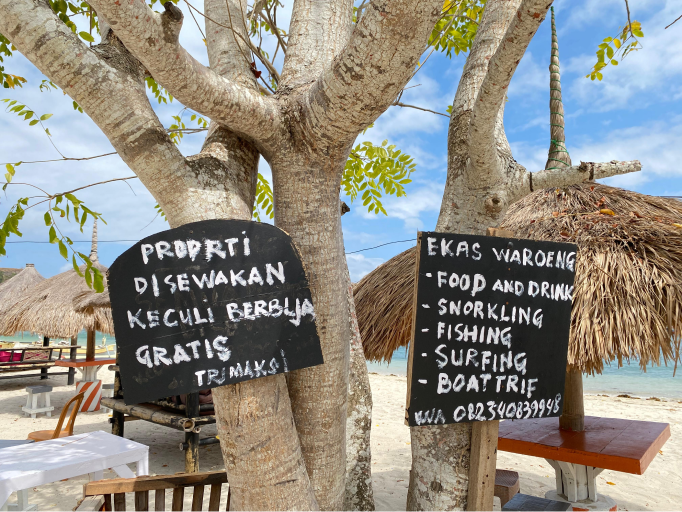 PROPRTI
DISEWAKAN
KECULI BERBLJA
GRATIS
TRIMAKSI
EKAS WAROENG
- FOOD AND DRINK
- SNORKLING
- FISHING
- SURFING
- BOAT TRIF
WA 082340839948